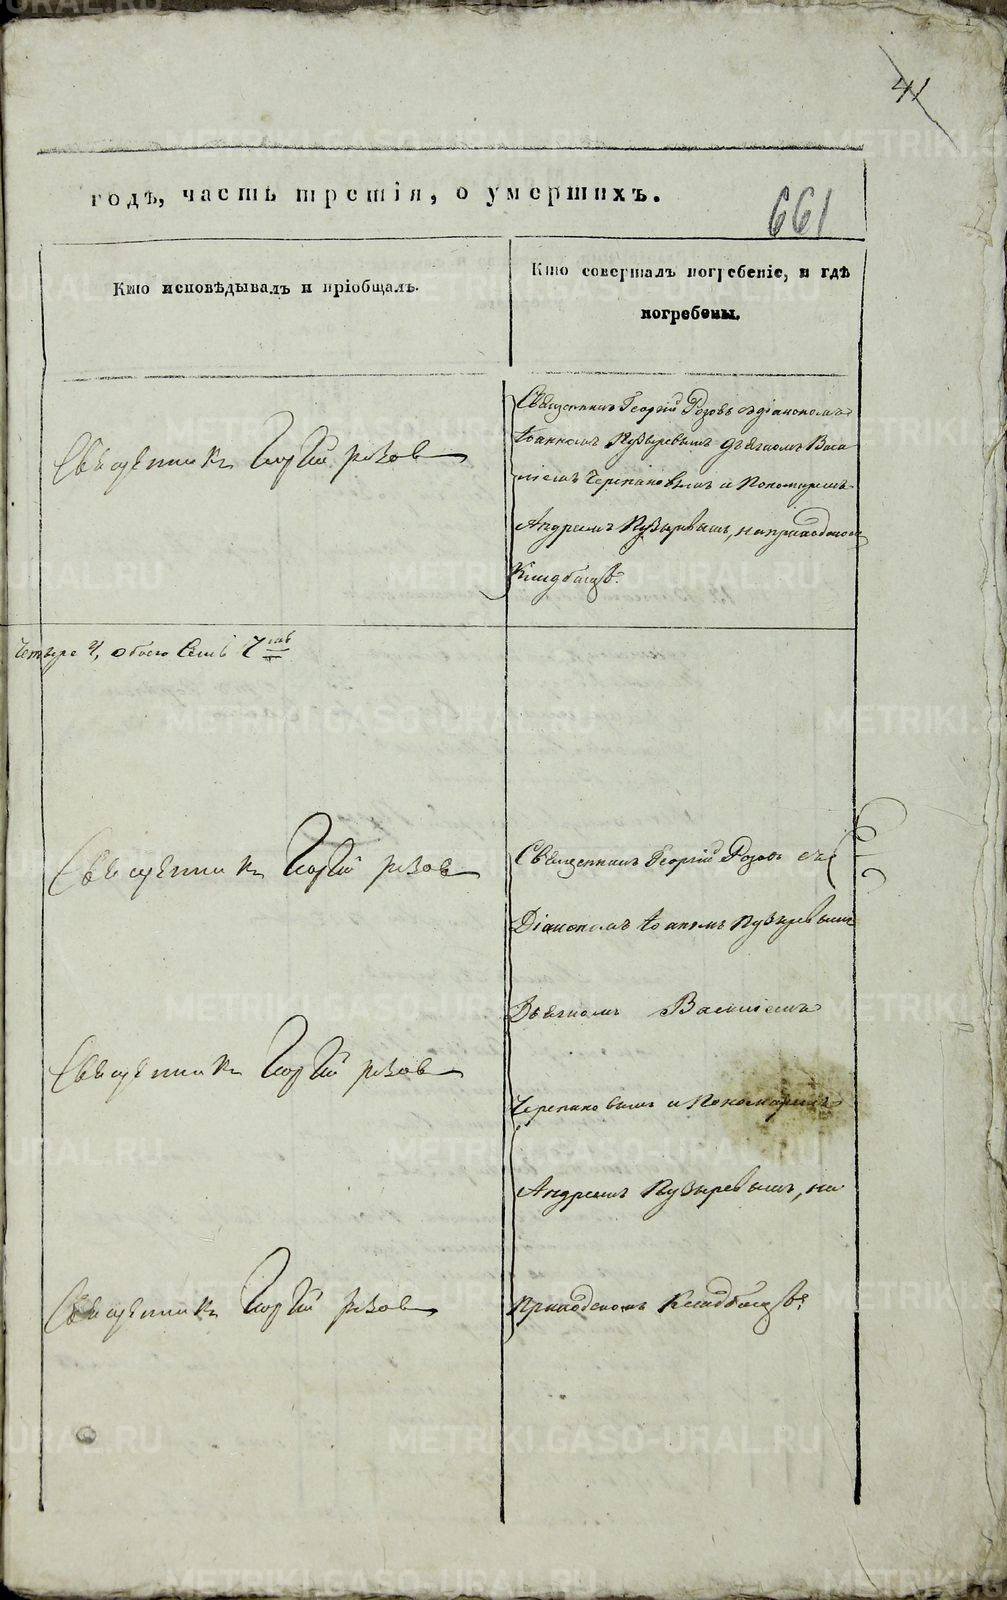 41
годѣ, часть третія, о умершихъ.
661
Кто исповѣдывалъ и пріобщалъ.
Кто совершалъ погребеніе, и гдѣ
погребены.
Священникъ Георгій Розовъ
Священникъ Георгій Розовъ съ діакономъ
Іоанномъ Пузыревымъ Дьячкомъ Васи
ліемъ Черепановымъ и Пономаремъ
Андреемъ Пузыревымъ, на приходскомъ
Кладбищѣ.
Четыре 4, обоего Семь 7
Священникъ Георгій Розовъ
Священникъ Георгій Розовъ съ
Діакономъ Іоанномъ Пузыревымъ
Дьячкомъ Василіемъ
Священникъ Георгій Розовъ
Черепановымъ и Пономаремъ
Андреемъ Пузыревымъ, на
Священникъ Георгій Розовъ
приходскомъ Кладбищѣ
METRIKI.GASO-URAL.RU